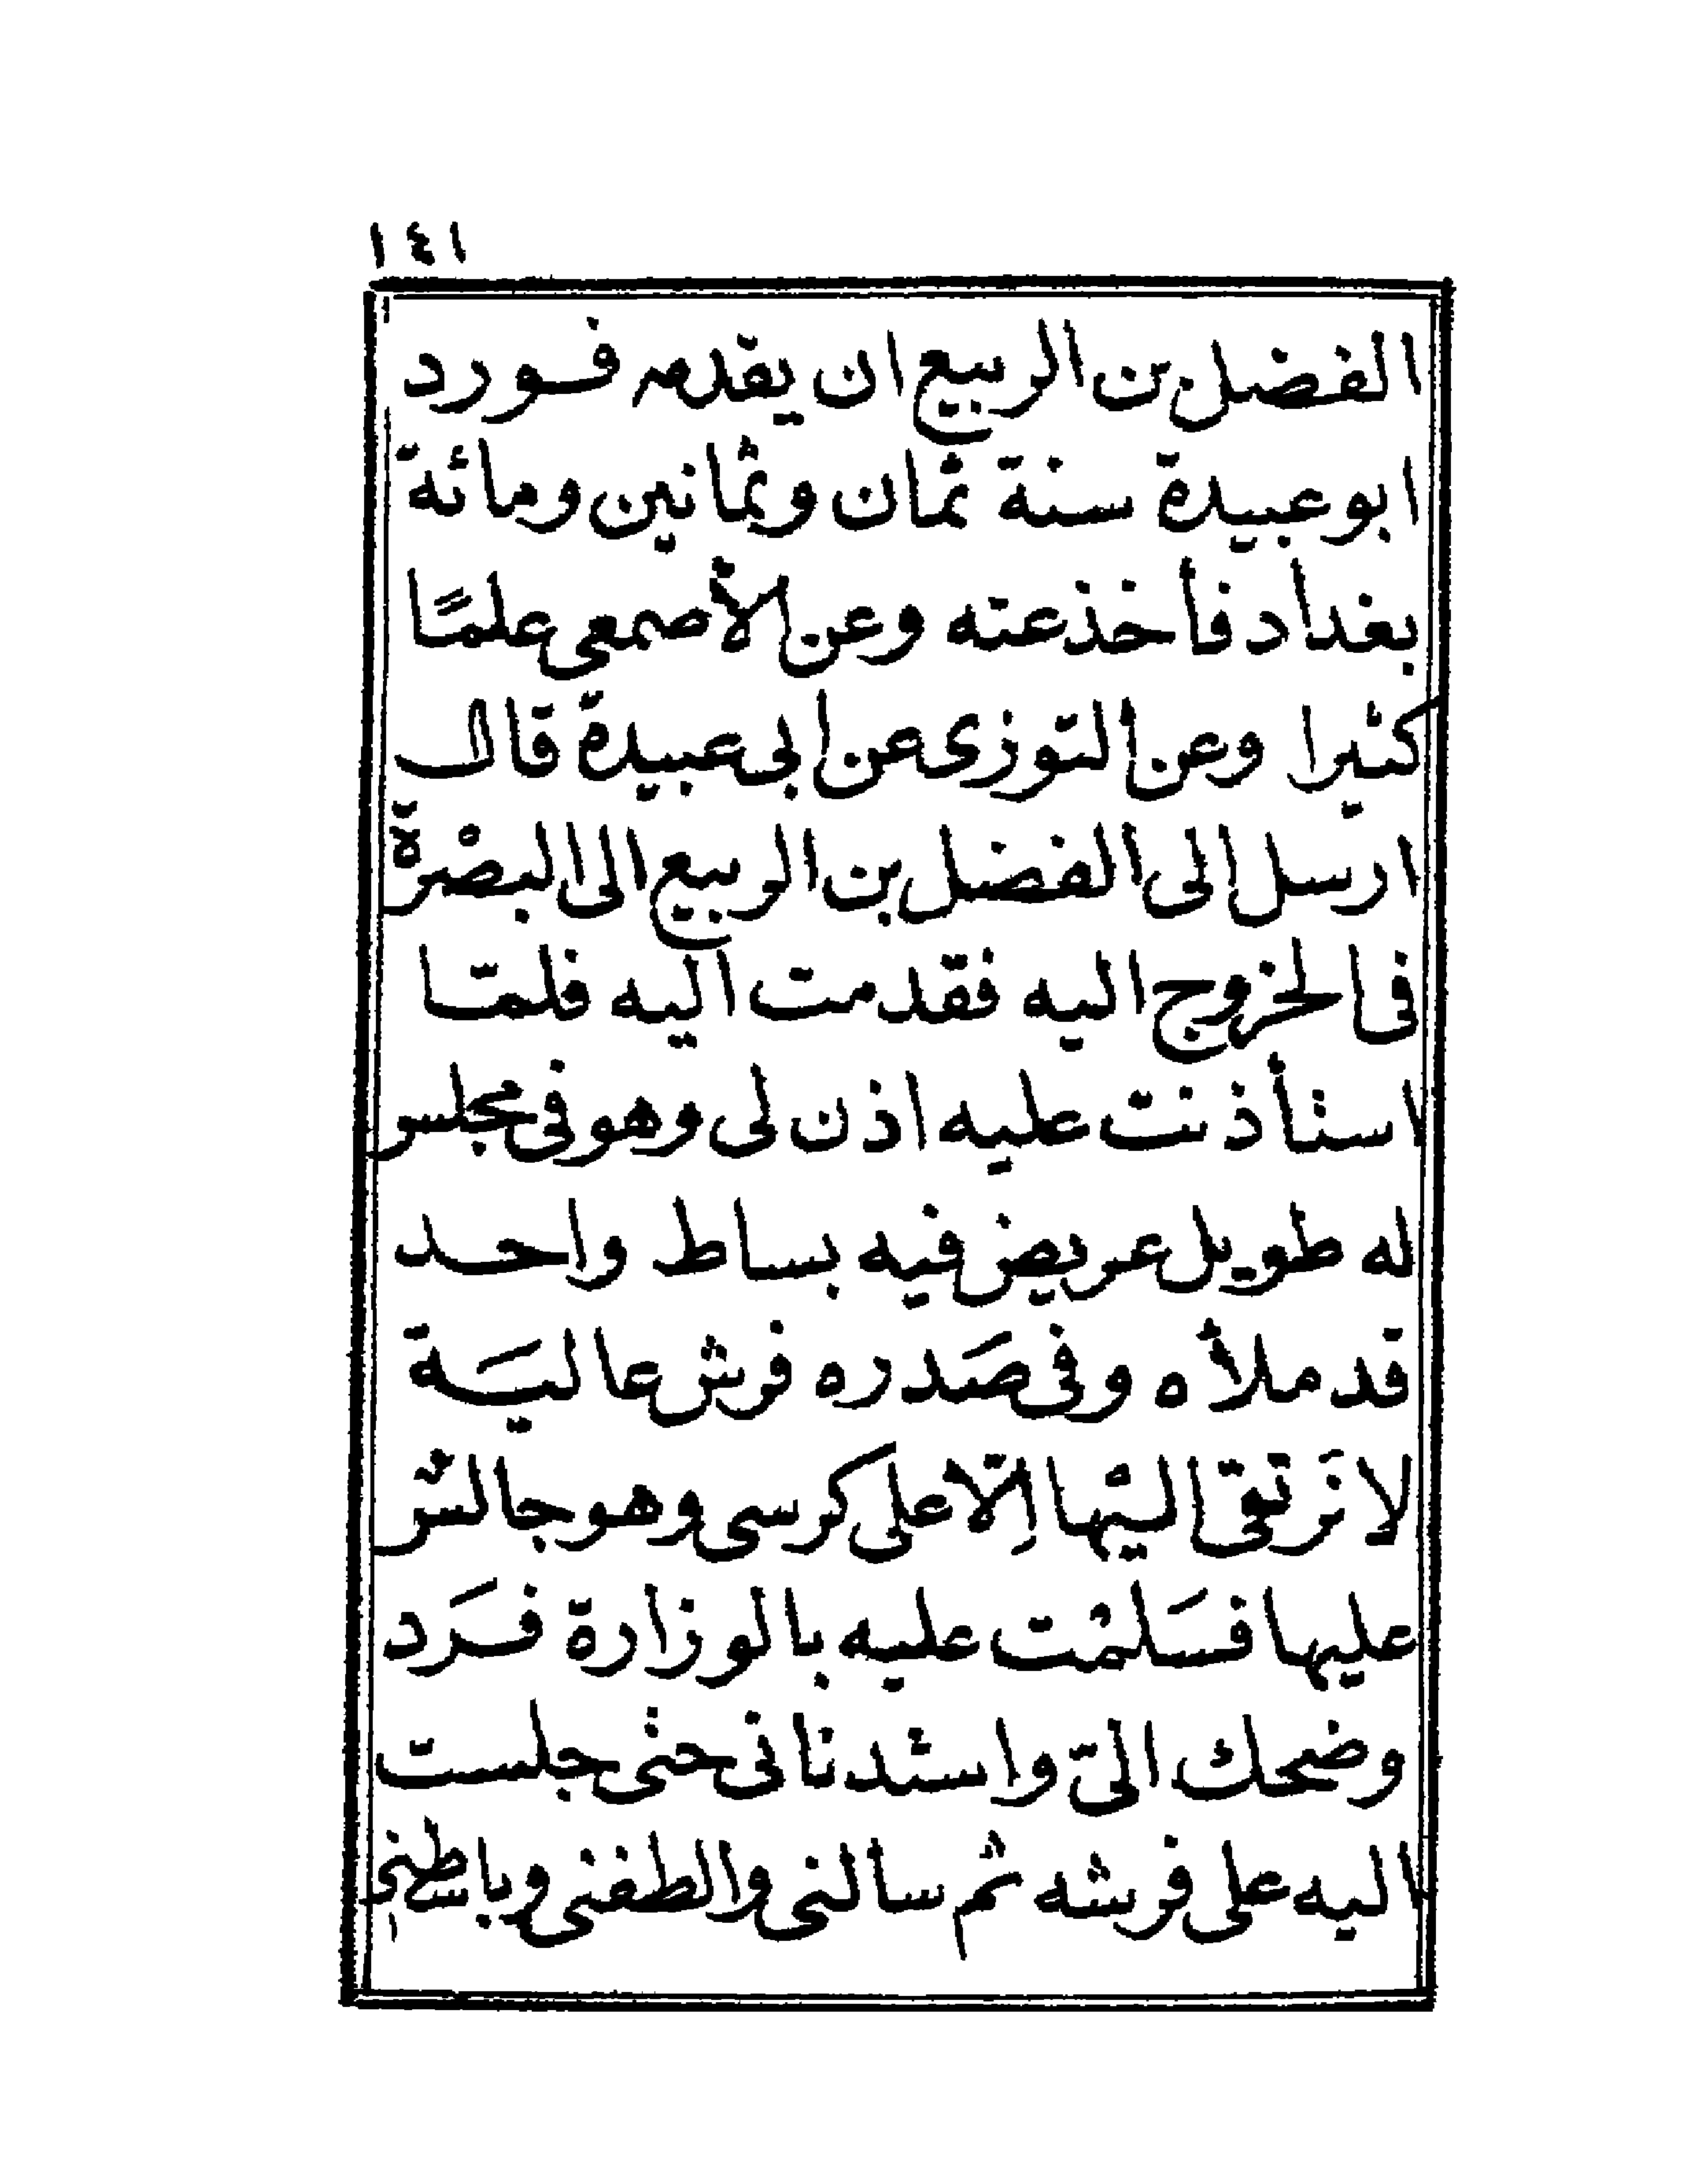 ١٤١
الفضل بن الربيع ان يقدمه فورد
ابو عبيدة سنة ثمان وثمانين ومائة
بغداد فأخذ عته وعن الأصمعي علمًا
كثيرا وعن التوزى عن ابى عبيدة قال
ارسل الى الفضل بن الربيع الى البصْرة
فى الخروج اليه فقدمت اليه فلمّا
استأذنت عليه اذن لى وهو فى مجلس
له طويل عريض فيه بساط واحد
قد ملأه وفى صَدره فرش عاليَة
لا نَرتقى اليْها اِلّا على كرسى وهو جالسْ
عليها فسَلمْت عليه بالوزارة فَرَد
وضحك الىّ واستدنانى حتى جلست
اليه على فرشه ثم سالنى والطفنى وباسطنى